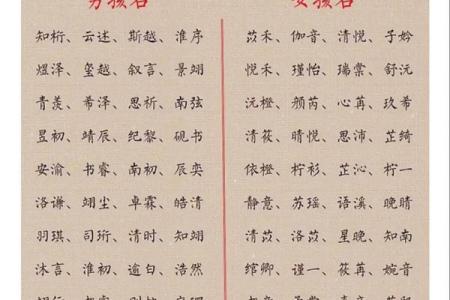 男孩名
女孩名
知桁、云述、斯越、淮序
苡禾、伽音、清悦、子妗
煜泽、玺越、叙言、景翊
悦禾、瑾怡、瑞棠、舒沅
青羡、希泽、思祈、南弦
沅橙、颜芮、心苒、玖希
昱初、靖辰、纪黎、砚书
清筱、晴悦、思沛、芷绮
安渝、书睿、南初、辰奕
依橙、柠衫、芷沁、柠一
洛谦、翊尘、卓霖、皓清
静意、苏瑶、语溪、晚晴
羽琪、司珩、清时、知翊
清苡、洛苡、星晚、知南
沐言、淮初、逾白、浩然
绾卿、谨一、筱苒、婉音